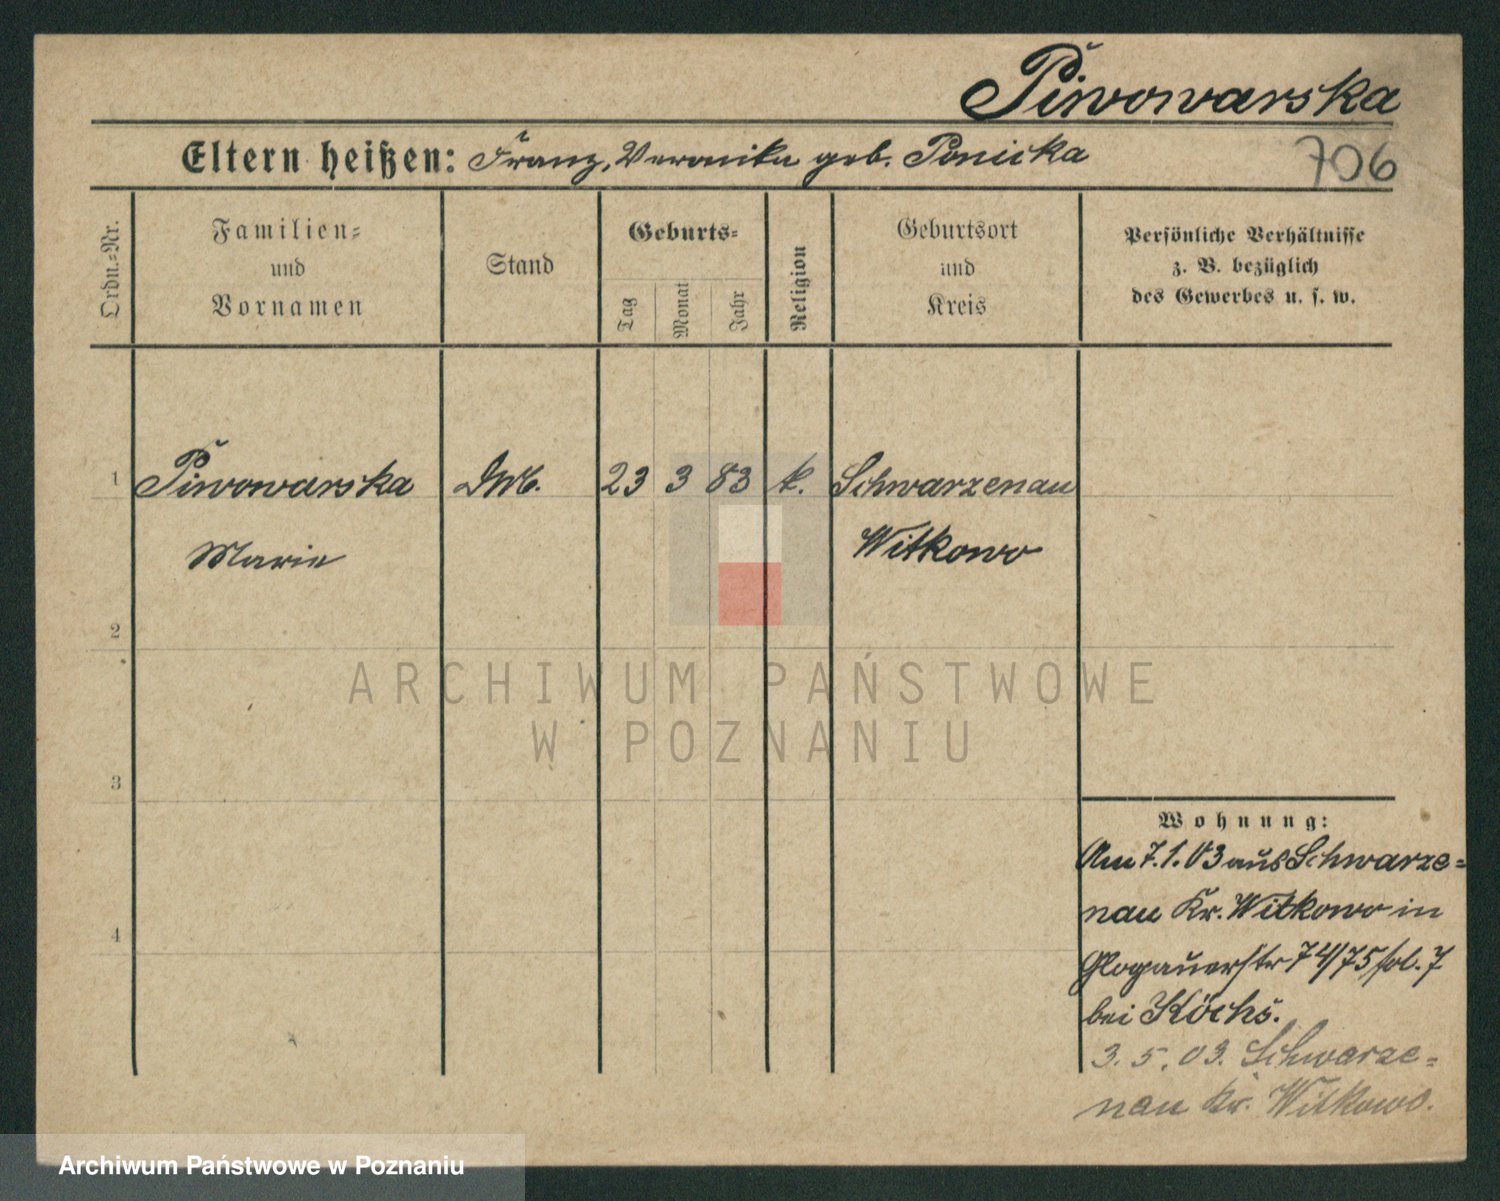 Piwowarska
Eltern heißen: Franz, Veronika geb. Ponicka
706
Ordn.=Nr.
Familien=
und
Vornamen
Stand
Geburts=
Tag
Monat
Jahr
Religion
Geburtsort
und
Kreis
Persönliche Verhältnisse
z. B. bezüglich
des Gewerbes u. s. w.
1 Piwowarska 23 3 83 k. Schwarzenau
Marie Witkowo
2
3
4
Wohnung:
Am 7.1.03 aus Schwarze=
nau Kr. Witkowo in
Glogauerstr 74/75 fol. 7
bei Köchs.
3.5.03. Schwarze=
nau Kr. Witkowo.
ARCHIWUM PAŃSTWOWE
W POZNANIU
Archiwum Państwowe w Poznaniu